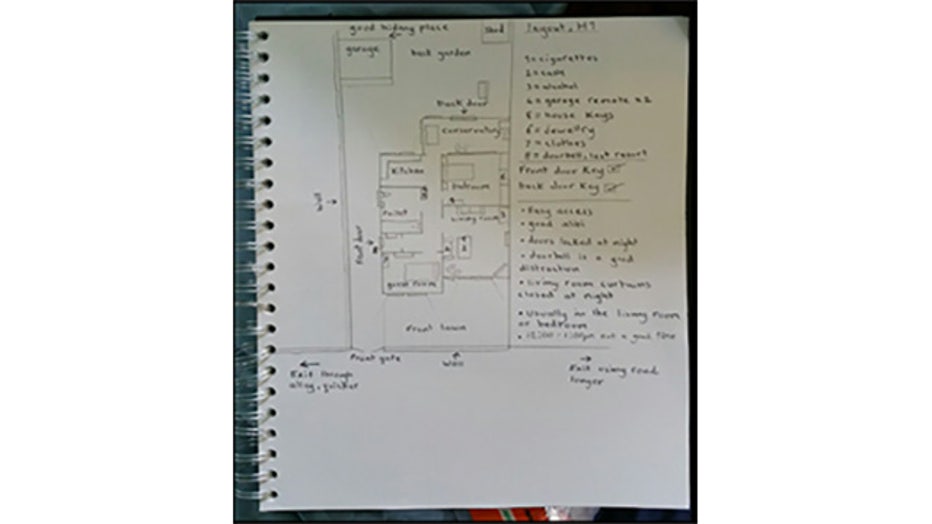 good hiding place
Shed
layout, M1
garage
back garden
1 = cigarettes
2 = cash
3 = alcohol
4 = garage remote x2
5 = house keys
6 = Jewellry
7 = clothes
8 = doorbell, last resort
Front door Key
Back door Key
Back door
conservatory
Kitchen
bedroom
toilet
living room
Wall
Front door
guest room
Front lawn
• Easy access
• good alibi
• doors locked at night
• doorbell is a good
distraction
• living room curtains
closed at night
• Usually in the living room
or bedroom
not a good time
Front gate
Wall
Exit through
alley, quicker
Exit using road
longer